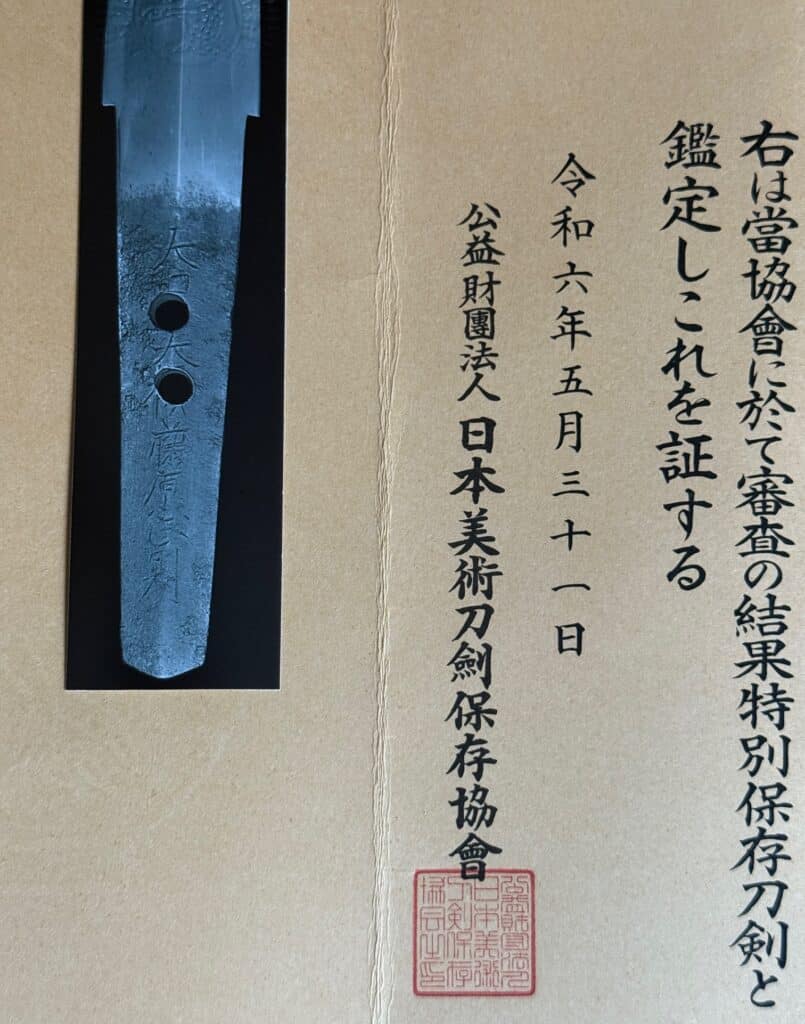 右は當協會に於て審査の結果特別保存刀剣と
鑑定しこれを証する
令和六年五月三十一日
公益財團法人 日本美術刀劍保存協會
公益財団法人
日本美術
刀剣保存
協会之印
大 大 藤原 則